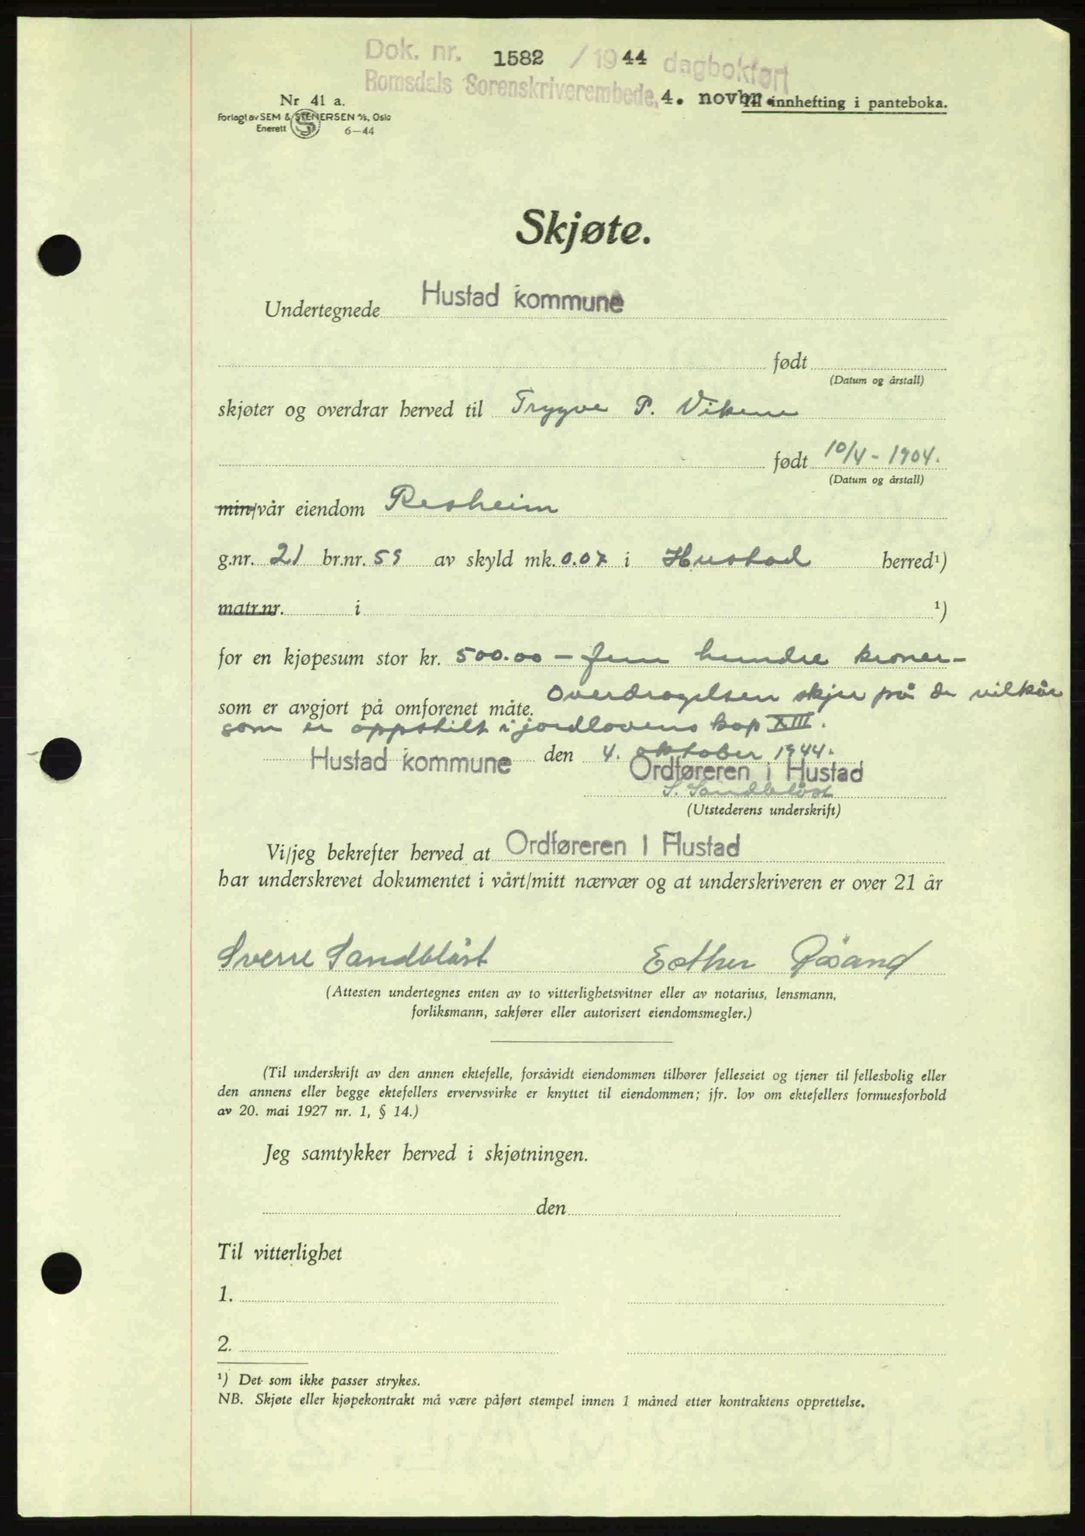 Dok. nr. 1582 / 1944 dagbokført
Romsdals Sorenskriverembede, 4. novbr.
Til innhefting i panteboka.
Nr 41 a.
Forlagt av SEM & STENERSEN A/S, Oslo
Enerett 6-44
Skjøte.
Undertegnede Hustad kommune
født
(Datum og årstall)
skjøter og overdrar herved til Trygve P. Vikene
født 10/4-1904.
(Datum og årstall)
min/vår eiendom Resheim
g.nr. 21 br.nr. 59 av skyld mk. 0.07 i Hustad herred¹)
matr.nr. i ¹)
for en kjøpesum stor kr. 500.00 - fem hundre kroner-
som er avgjort på omforenet måte. Overdragelsen skjer på de vilkår
som er oppstilt i jordlovens kap XIII.
Hustad kommune den 4. oktober 1944.
Ordføreren i Hustad
S. Sandblåst
(Utstederens underskrift)
Vi/jeg bekrefter herved at Ordføreren i Hustad
har underskrevet dokumentet i vårt/mitt nærvær og at underskriveren er over 21 år
Sverre Sandblåst Esther Røsand
(Attesten undertegnes enten av to vitterlighetsvitner eller av notarius, lensmann,
forliksmann, sakfører eller autorisert eiendomsmegler.)
(Til underskrift av den annen ektefelle, forsåvidt eiendommen tilhører felleseiet og tjener til fellesbolig eller
den annens eller begge ektefellers ervervsvirke er knyttet til eiendommen; jfr. lov om ektefellers formuesforhold
av 20. mai 1927 nr. 1, § 14.)
Jeg samtykker herved i skjøtningen.
den
Til vitterlighet
1.
2.
¹) Det som ikke passer strykes.
NB. Skjøte eller kjøpekontrakt må være påført stempel innen 1 måned etter kontraktens opprettelse.